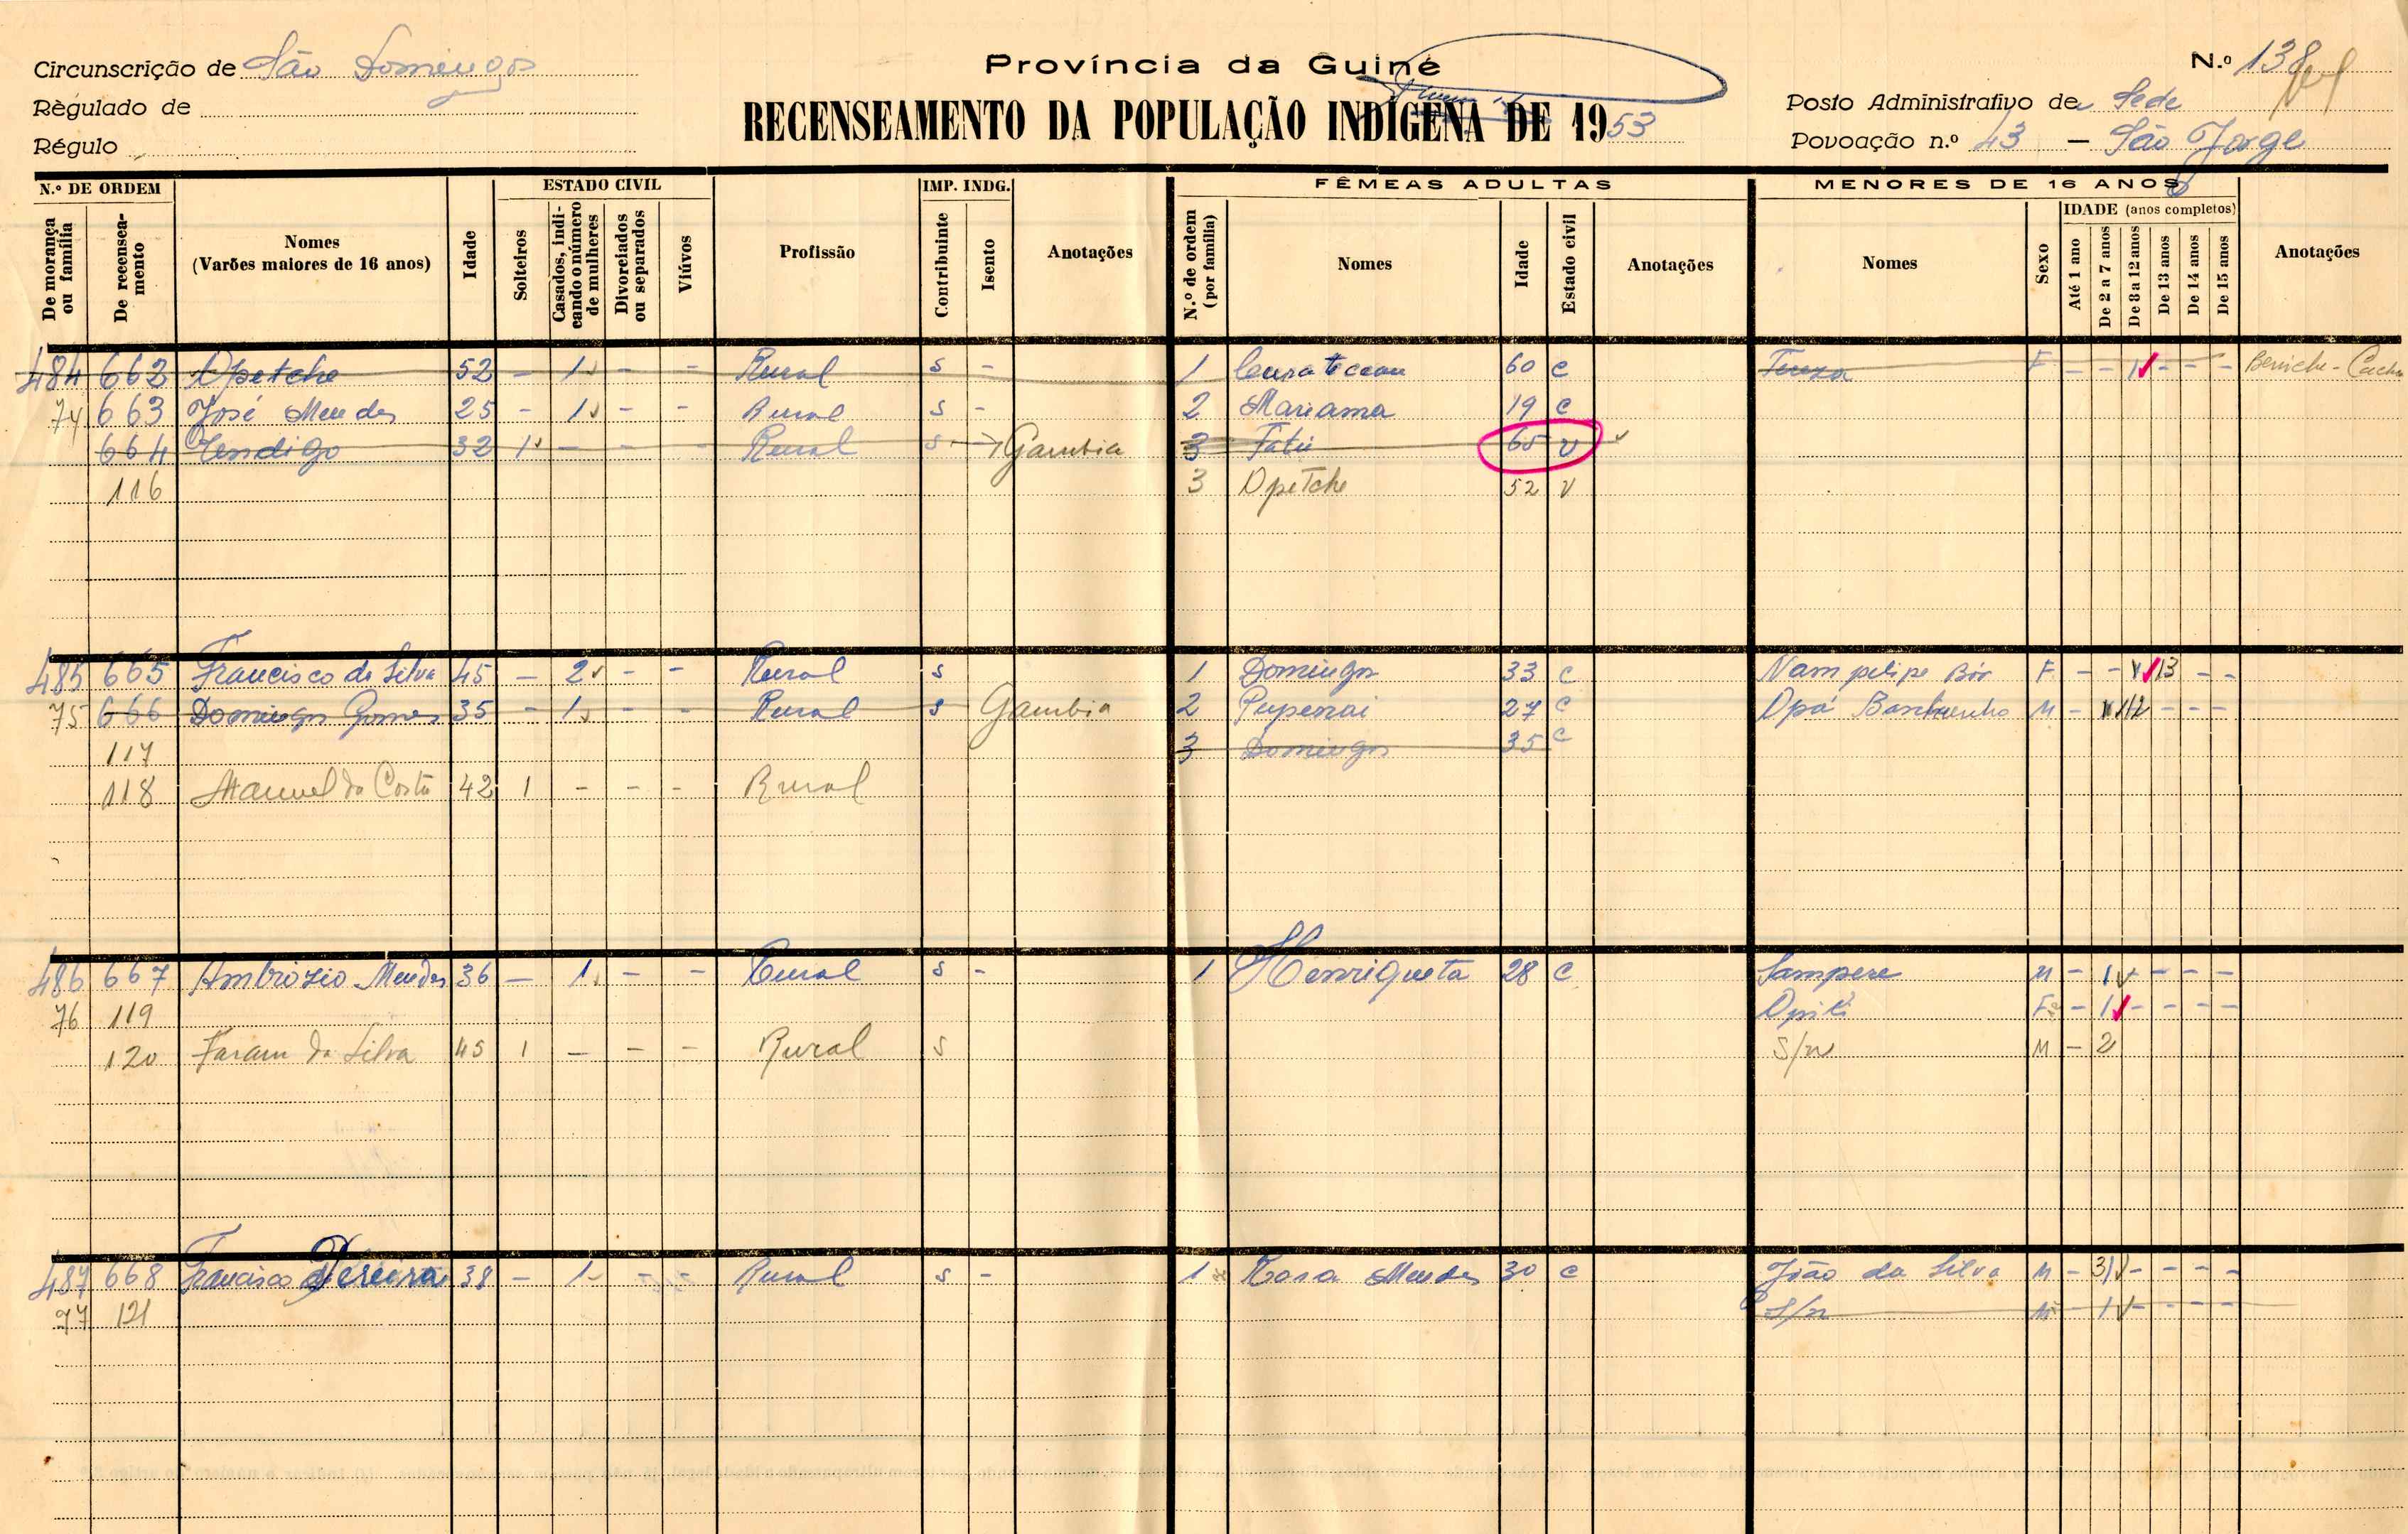 Circunscrição de São Domingos
Règulado de
Régulo
Província da Guiné
RECENSEAMENTO DA POPULAÇÃO INDÍGENA DE 1953
N.º 138
Posto Administrativo de Sede
Povoação n.º 43 — São Jorge
N.º DE ORDEM
De morança ou família
De recenseamento
Nomes
(Varões maiores de 16 anos)
Idade
ESTADO CIVIL
Solteiros
Casados, indicando o número de mulheres
Divorciados ou separados
Viúvos
Profissão
IMP. INDG.
Contribuinte
Isento
Anotações
FÊMEAS ADULTAS
N.º de ordem (por família)
Nomes
Idade
Estado civil
Anotações
MENORES DE 16 ANOS
Nomes
Sexo
IDADE (anos completos)
Até 1 ano
De 2 a 7 anos
De 8 a 12 anos
De 13 anos
De 14 anos
De 15 anos
Anotações
484 662 Opetche 52 - 1 - - Rural S - 1 60 C Tereza F - - 1 - - -
74 663 José Mendes 25 - 1 - - Rural S - 2 Mariama 19 C
664 32 1 - - - Rural S Gambia 3 Fatu 65 V
116 3 Opetche 52 V
485 665 Francisco da Silva 45 - 2 - - Rural S 1 Domingos 33 C F - - 13 - -
75 666 Domingos Gomes 35 - 1 - - Rural S Gambia 2 Pupenai 27 C M - 12 - - -
117 3 Domingos 35 C
118 Manuel da Costa 42 1 - - - Rural
486 667 Ambrozio Mendes 36 - 1 - - Rural S - 1 Henriqueta 28 C Sampere M - 1 - - - -
76 119 F - 1 - - - -
120 da Silva 45 1 - - - Rural S S/n M - 2
487 668 Francisco Pereira 38 - 1 - - Rural S - 1 Rosa Mendes 30 C João da Silva M - 3 - - - -
77 121 S/n M 1 - - - -